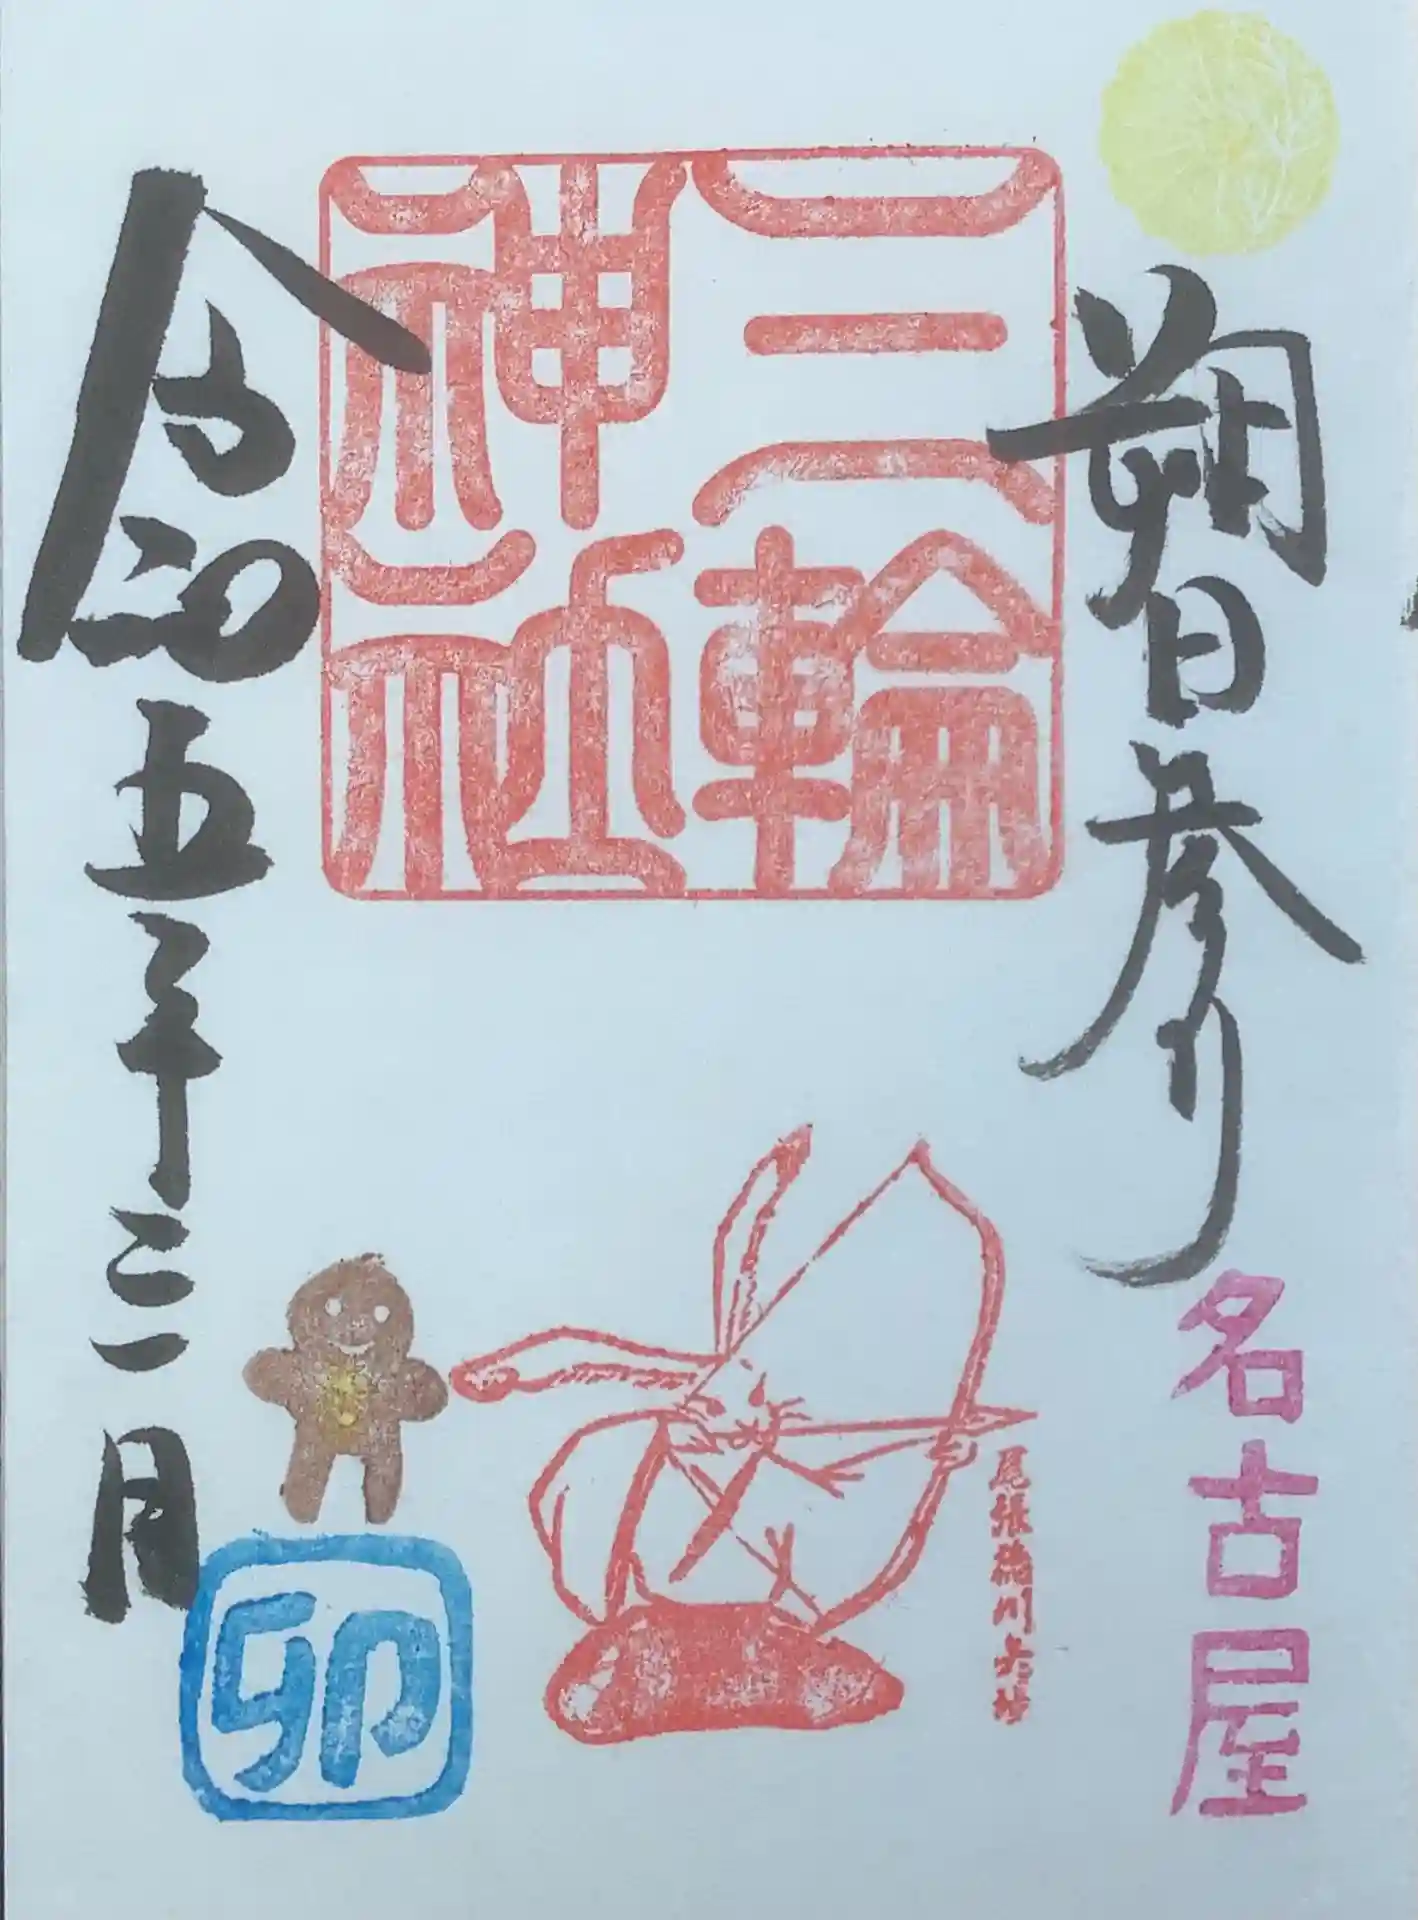 朔日参り
名古屋
三輪
神社
尾張徳川矢場
令和五年三月
卯